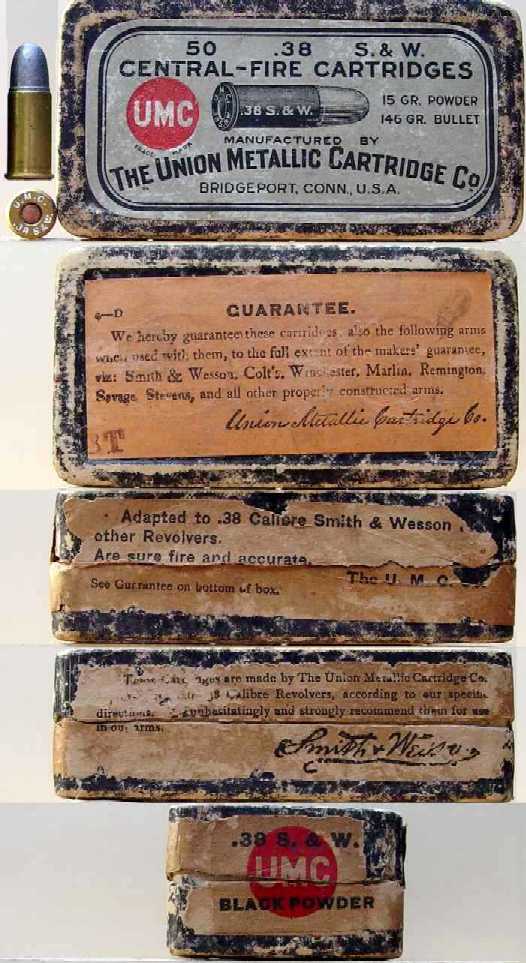 50 .38 S. & W.
CENTRAL-FIRE CARTRIDGES
UMC
TRADE MARK
.38 S. & W.
15 GR. POWDER
146 GR. BULLET
MANUFACTURED BY
THE UNION METALLIC CARTRIDGE CO.
BRIDGEPORT, CONN., U.S.A.
U.M.C.
.38 S & W.
4—D
GUARANTEE.
We hereby guarantee these cartridges, also the following arms
when used with them, to the full extent of the makers' guarantee,
viz: Smith & Wesson, Colt's, Winchester, Marlin, Remington,
Savage, Stevens, and all other properly constructed arms.
Union Metallic Cartridge Co.
3T
Adapted to .38 Calibre Smith & Wesson
other Revolvers.
Are sure fire and accurate.
The U. M. C.
See Guarantee on bottom of box.
These Cartridges are made by The Union Metallic Cartridge Co.
38 Calibre Revolvers, according to our specific
directions. unhesitatingly and strongly recommend them for use
in our arms.
Smith & Wesson
.38 S. & W.
UMC
BLACK POWDER